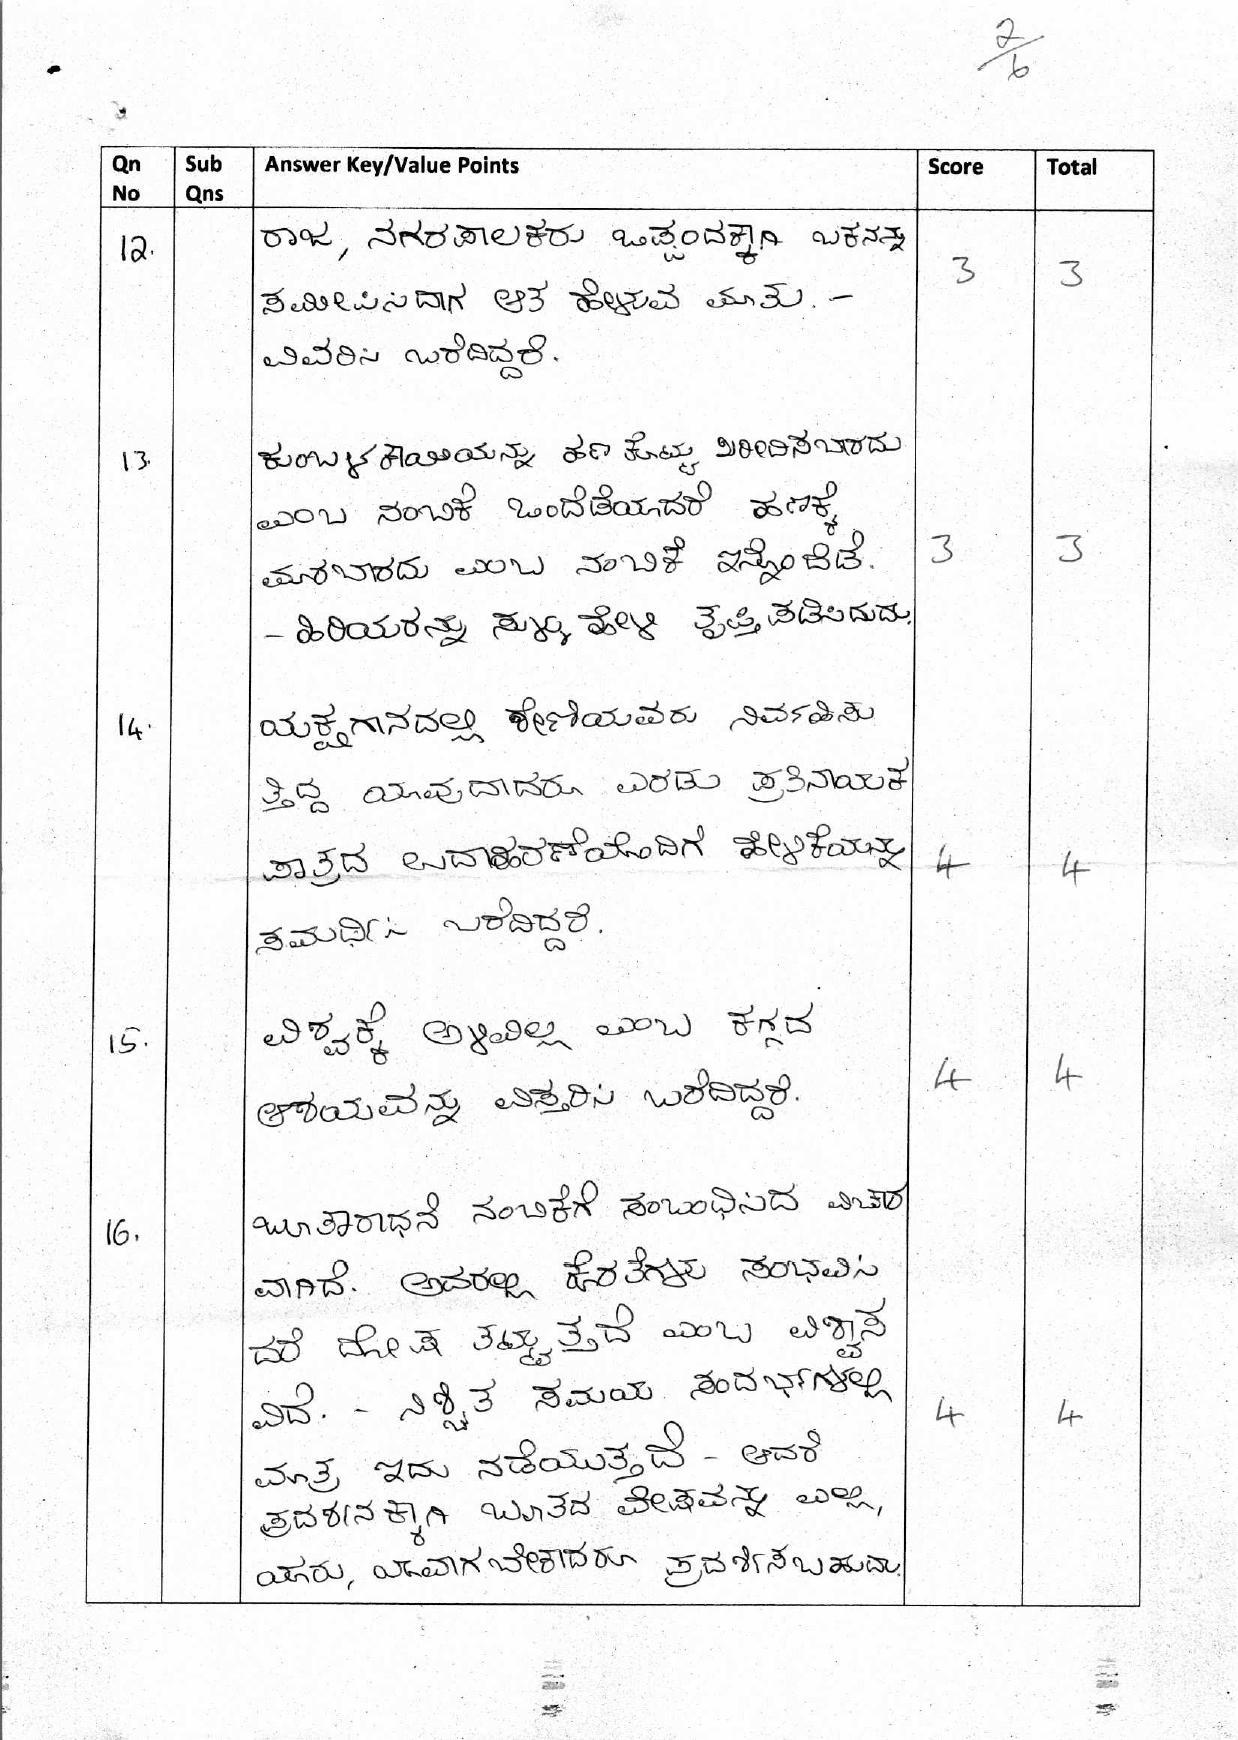 2/6
Qn No | Sub Qns | Answer Key/Value Points | Score | Total
12. ರಾಜ, ನಗರಪಾಲಕರು ಒಪ್ಪಂದಕ್ಕಾಗಿ ಬಕನನ್ನು
ಸಮೀಪಿಸಿದಾಗ ಆತ ಹೇಳುವ ಮಾತು. - 3 3
ವಿವರಿಸಿ ಬರೆದಿದ್ದರೆ.
13. ಕುಂಬಳಕಾಯಿಯನ್ನು ಹಣ ಕೊಟ್ಟು ಖರೀದಿಸಬಾರದು
ಎಂಬ ನಂಬಿಕೆ ಒಂದೆಡೆಯಾದರೆ ಹಣಕ್ಕೆ
ಮಾರಬಾರದು ಎಂಬ ನಂಬಿಕೆ ಇನ್ನೊಂದೆಡೆ. 3 3
- ಹಿರಿಯರನ್ನು ಸುಳ್ಳು ಹೇಳಿ ತೃಪ್ತಿಪಡಿಸಿದುದು.
14. ಯಕ್ಷಗಾನದಲ್ಲಿ ಶೇಣಿಯವರು ನಿರ್ವಹಿಸು
ತ್ತಿದ್ದ ಯಾವುದಾದರೂ ಎರಡು ಪ್ರತಿನಾಯಕ
ಪಾತ್ರದ ಉದಾಹರಣೆಯೊಂದಿಗೆ ಹೇಳಿಕೆಯನ್ನು 4 4
ಸಮರ್ಥಿಸಿ ಬರೆದಿದ್ದರೆ.
15. ವಿಶ್ವಕ್ಕೆ ಅಳಿವಿಲ್ಲ ಎಂಬ ಕಗ್ಗದ
ಆಶಯವನ್ನು ವಿಸ್ತರಿಸಿ ಬರೆದಿದ್ದರೆ. 4 4
16. ಭೂತಾರಾಧನೆ ನಂಬಿಕೆಗೆ ಸಂಬಂಧಿಸಿದ ವಿಚಾರ
ವಾಗಿದೆ. ಅದರಲ್ಲಿ ಕೊರತೆಗಳು ಸಂಭವಿಸಿ
ದರೆ ದೋಷ ತಟ್ಟುತ್ತದೆ ಎಂಬ ವಿಶ್ವಾಸ
ವಿದೆ. - ನಿಶ್ಚಿತ ಸಮಯ ಸಂದರ್ಭಗಳಲ್ಲಿ 4 4
ಮಾತ್ರ ಇದು ನಡೆಯುತ್ತದೆ - ಆದರೆ
ಪ್ರದರ್ಶನಕ್ಕಾಗಿ ಭೂತದ ವೇಷವನ್ನು ಎಲ್ಲಿ,
ಯಾರು, ಯಾವಾಗಬೇಕಾದರೂ ಪ್ರದರ್ಶಿಸಬಹುದು.